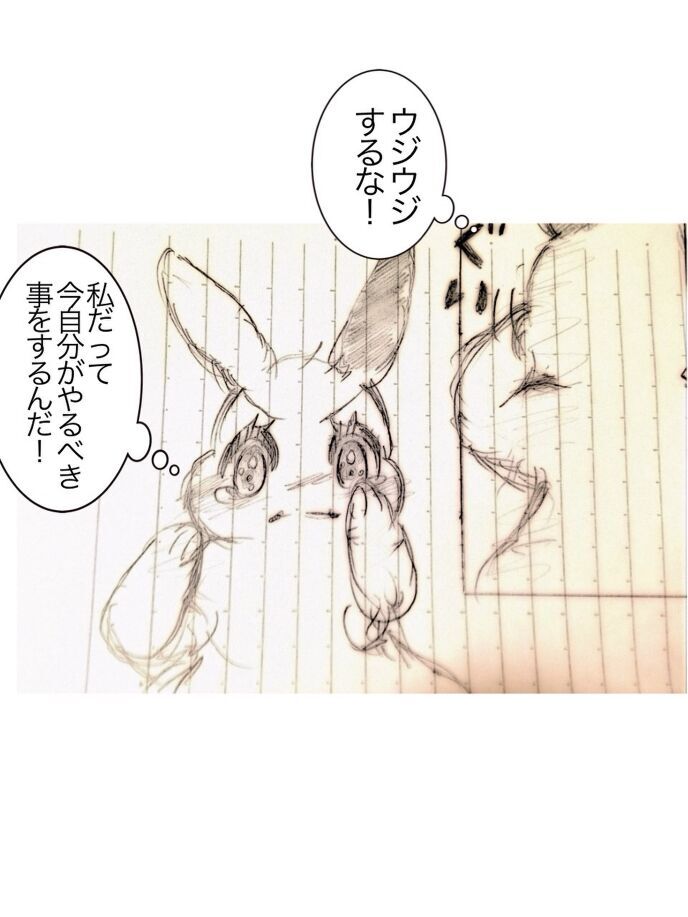 ウジウジ
するな！
ぐい
私だって
今自分がやるべき
事をするんだ！